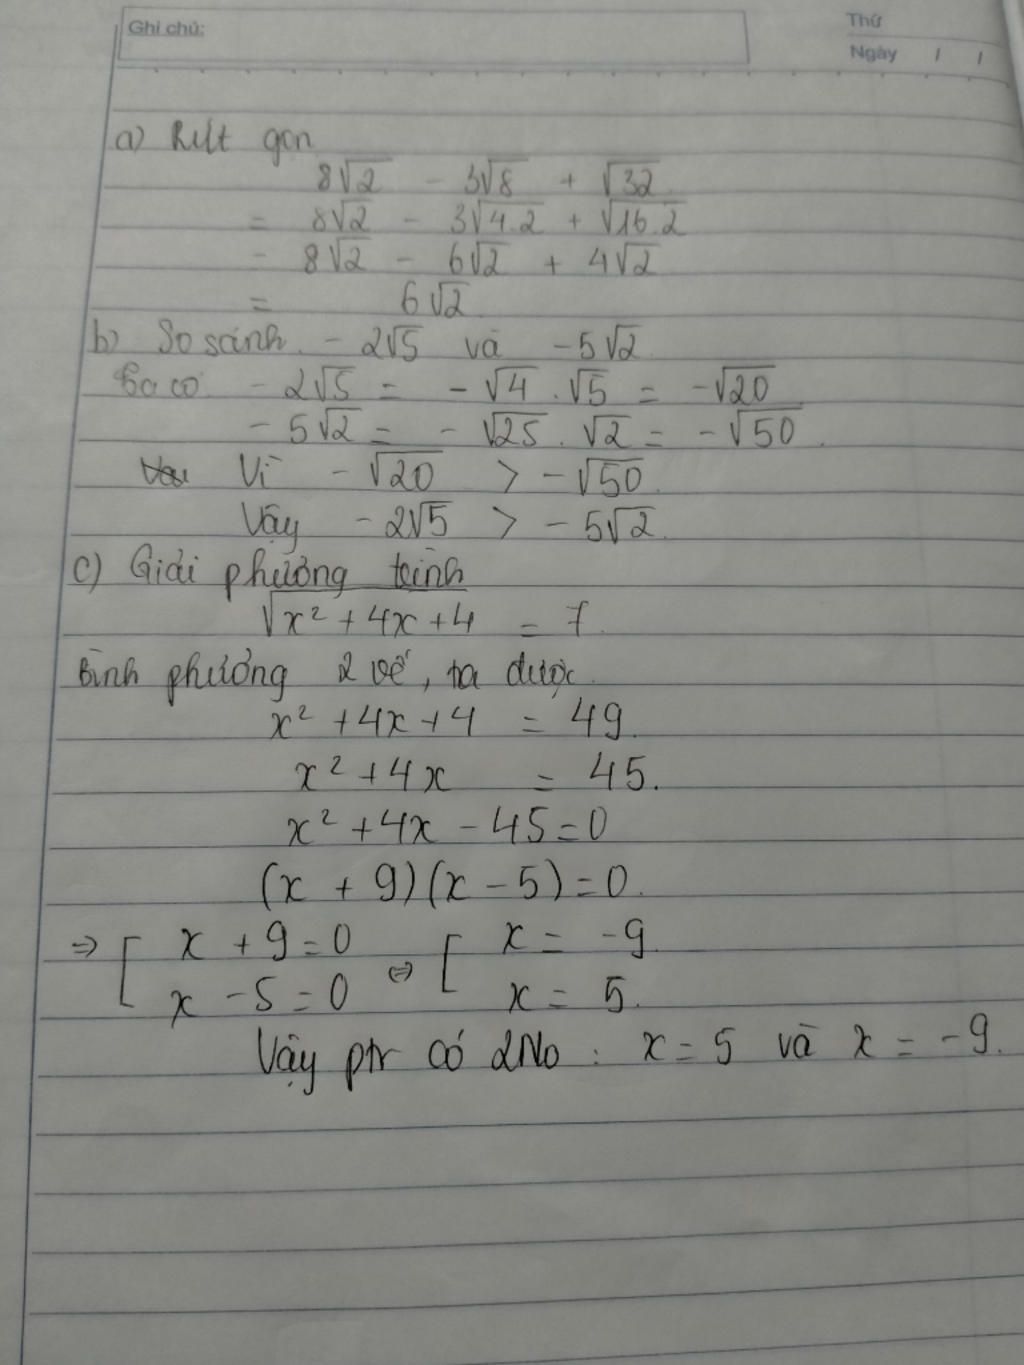 Ghi chú:
Thứ
Ngày / /
a) Rút gọn
8√2 - 3√8 + √32
= 8√2 - 3√4.2 + √16.2
= 8√2 - 6√2 + 4√2
= 6√2
b) So sánh - 2√5 và -5√2
Ta có - 2√5 = - √4 . √5 = -√20
- 5√2 = - √25 . √2 = -√50.
Vì -√20 > -√50
Vậy -2√5 > -5√2.
c) Giải phương trình
√x² + 4x + 4 = 7
Bình phương 2 vế, ta được
x² + 4x + 4 = 49.
x² + 4x = 45.
x² + 4x - 45 = 0
(x + 9)(x - 5) = 0.
⇒ [ x + 9 = 0 ⇔ [ x = -9.
x - 5 = 0 x = 5.
Vậy ptr có 2No : x = 5 và x = -9.